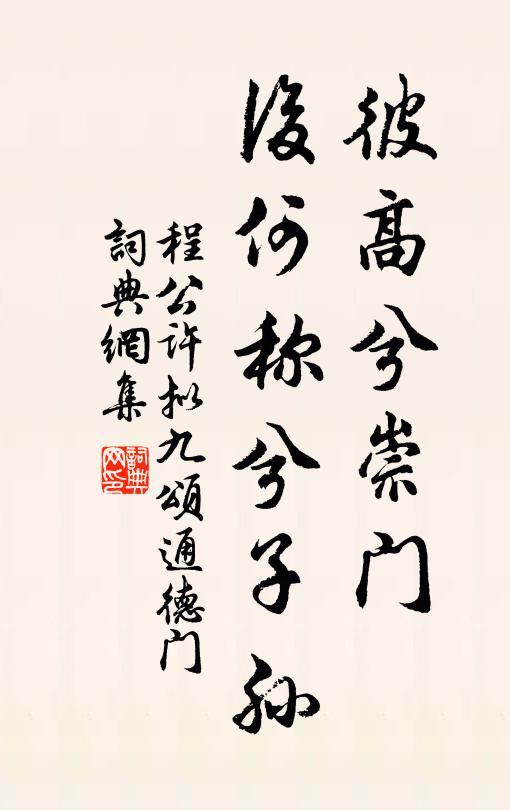 彼高兮崇门
後何称兮子孙
程公许拟九頌通德门
詞典網集
詞典网印